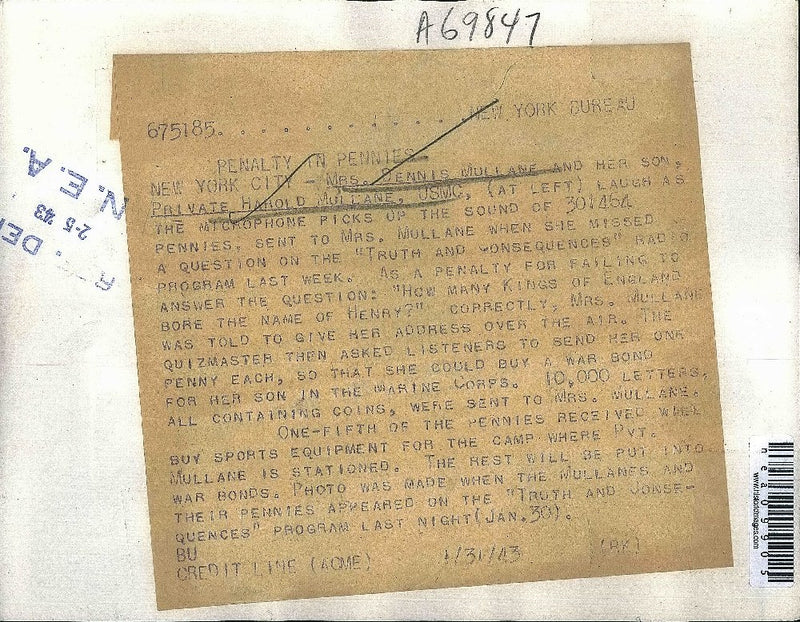 A69847
675185. . . . . . . . . . . NEW YORK BUREAU
PENALTY IN PENNIES
NEW YORK CITY - MRS. DENNIS MULLANE AND HER SON,
PRIVATE HAROLD MULLANE, USMC, (AT LEFT) LAUGH AS
THE MICROPHONE PICKS UP THE SOUND OF 301464
PENNIES, SENT TO MRS. MULLANE WHEN SHE MISSED
A QUESTION ON THE "TRUTH AND CONSEQUENCES" RADIO
PROGRAM LAST WEEK. AS A PENALTY FOR FAILING TO
ANSWER THE QUESTION: "HOW MANY KINGS OF ENGLAND
BORE THE NAME OF HENRY?" CORRECTLY, MRS. MULLANE
WAS TOLD TO GIVE HER ADDRESS OVER THE AIR. THE
QUIZMASTER THEN ASKED LISTENERS TO SEND HER ONE
PENNY EACH, SO THAT SHE COULD BUY A WAR BOND
FOR HER SON IN THE MARINE CORPS. 10,000 LETTERS,
ALL CONTAINING COINS, WERE SENT TO MRS. MULLANE.
ONE-FIFTH OF THE PENNIES RECEIVED WILL
BUY SPORTS EQUIPMENT FOR THE CAMP WHERE PVT.
MULLANE IS STATIONED. THE REST WILL BE PUT INTO
WAR BONDS. PHOTO WAS MADE WHEN THE MULLANES AND
THEIR PENNIES APPEARED ON THE "TRUTH AND CONSE-
QUENCES" PROGRAM LAST NIGHT(JAN.30).
BU
CREDIT LINE (ACME) 1/31/43 (RK)
N.E.A.
2-5 '43
nea09905